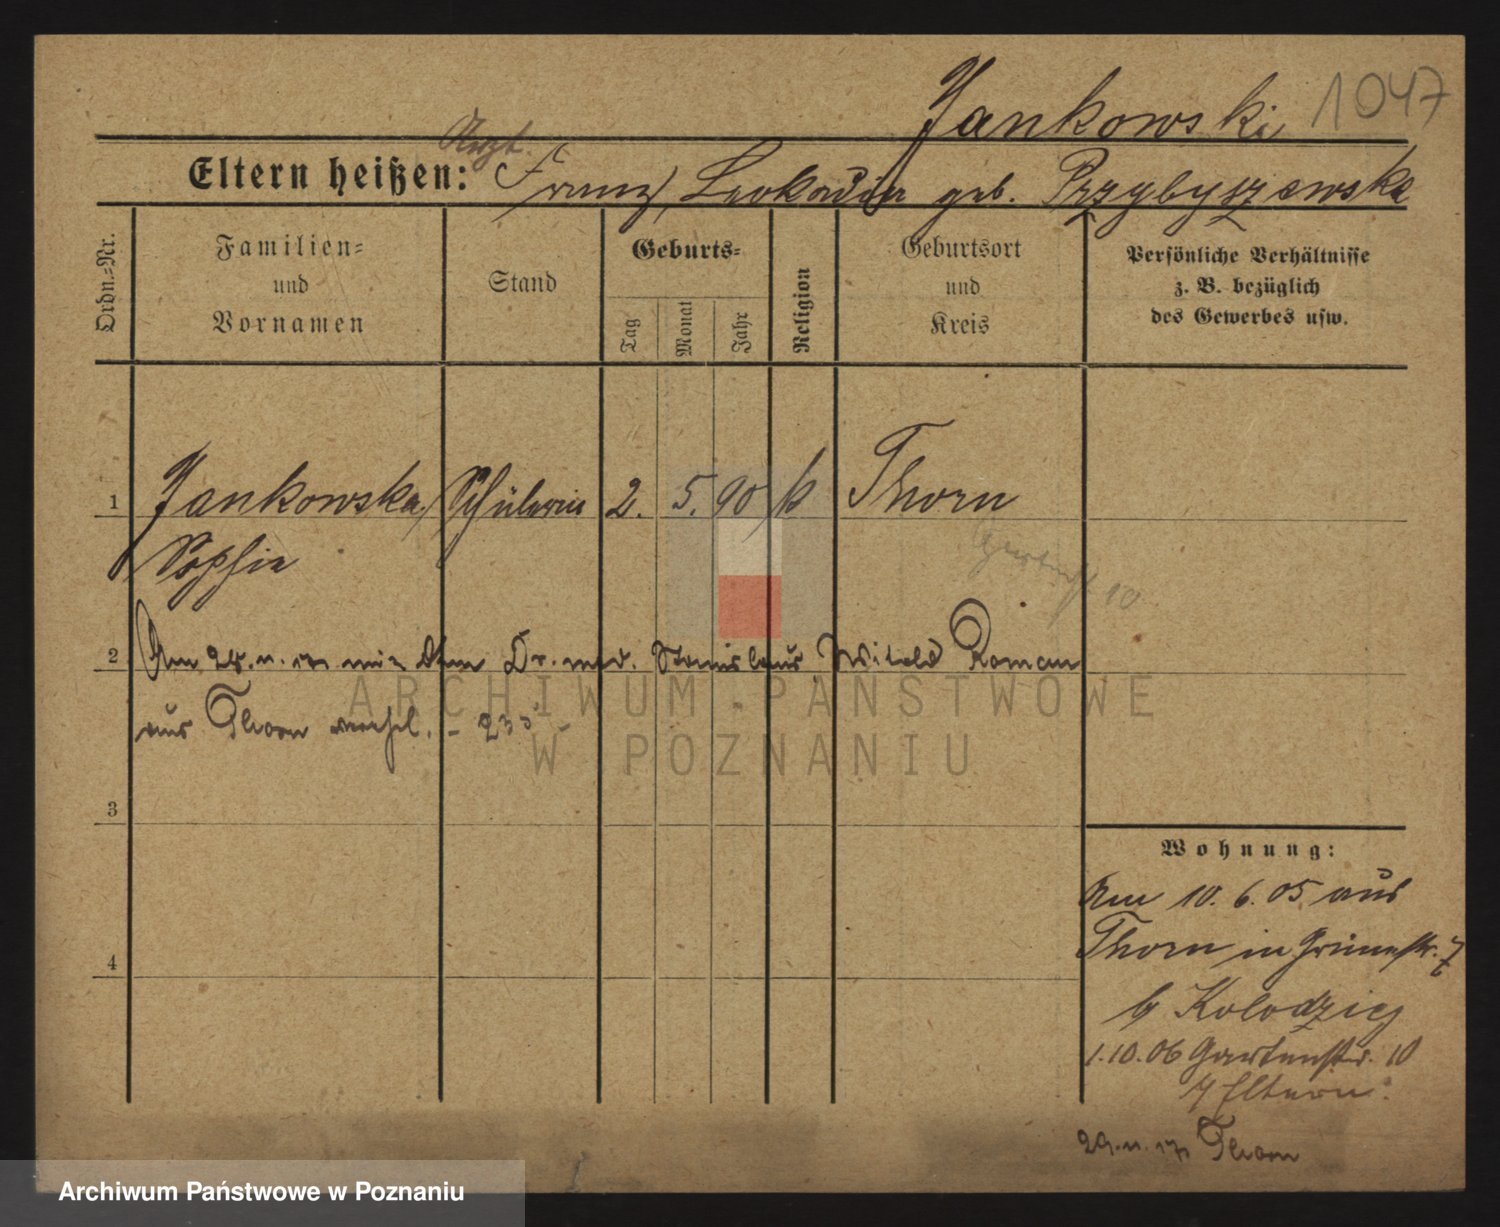 Jankowski 1047
Arzt
Eltern heißen: Franz, Leokadia geb. Przybyszewska
Ordn.=Nr.
Familien=
und
Vornamen
Stand
Geburts=
Tag
Monat
Jahr
Religion
Geburtsort
und
Kreis
Persönliche Verhältnisse
z. B. bezüglich
des Gewerbes usw.
1 Jankowska, Schülerin 2. 5. 90 k Thorn
Sophie
Gartenstr. 10
2 Am mit dem Dr. med. Stanislaus Witold Roman
aus Thorn verehel.
3
4
Wohnung:
Am 10. 6. 05 aus
Thorn in Grünestr.
b/ Kolodziej
1.10.06 Gartenstr. 10
b/ Eltern.
Thorn
ARCHIWUM PAŃSTWOWE
W POZNANIU
Archiwum Państwowe w Poznaniu